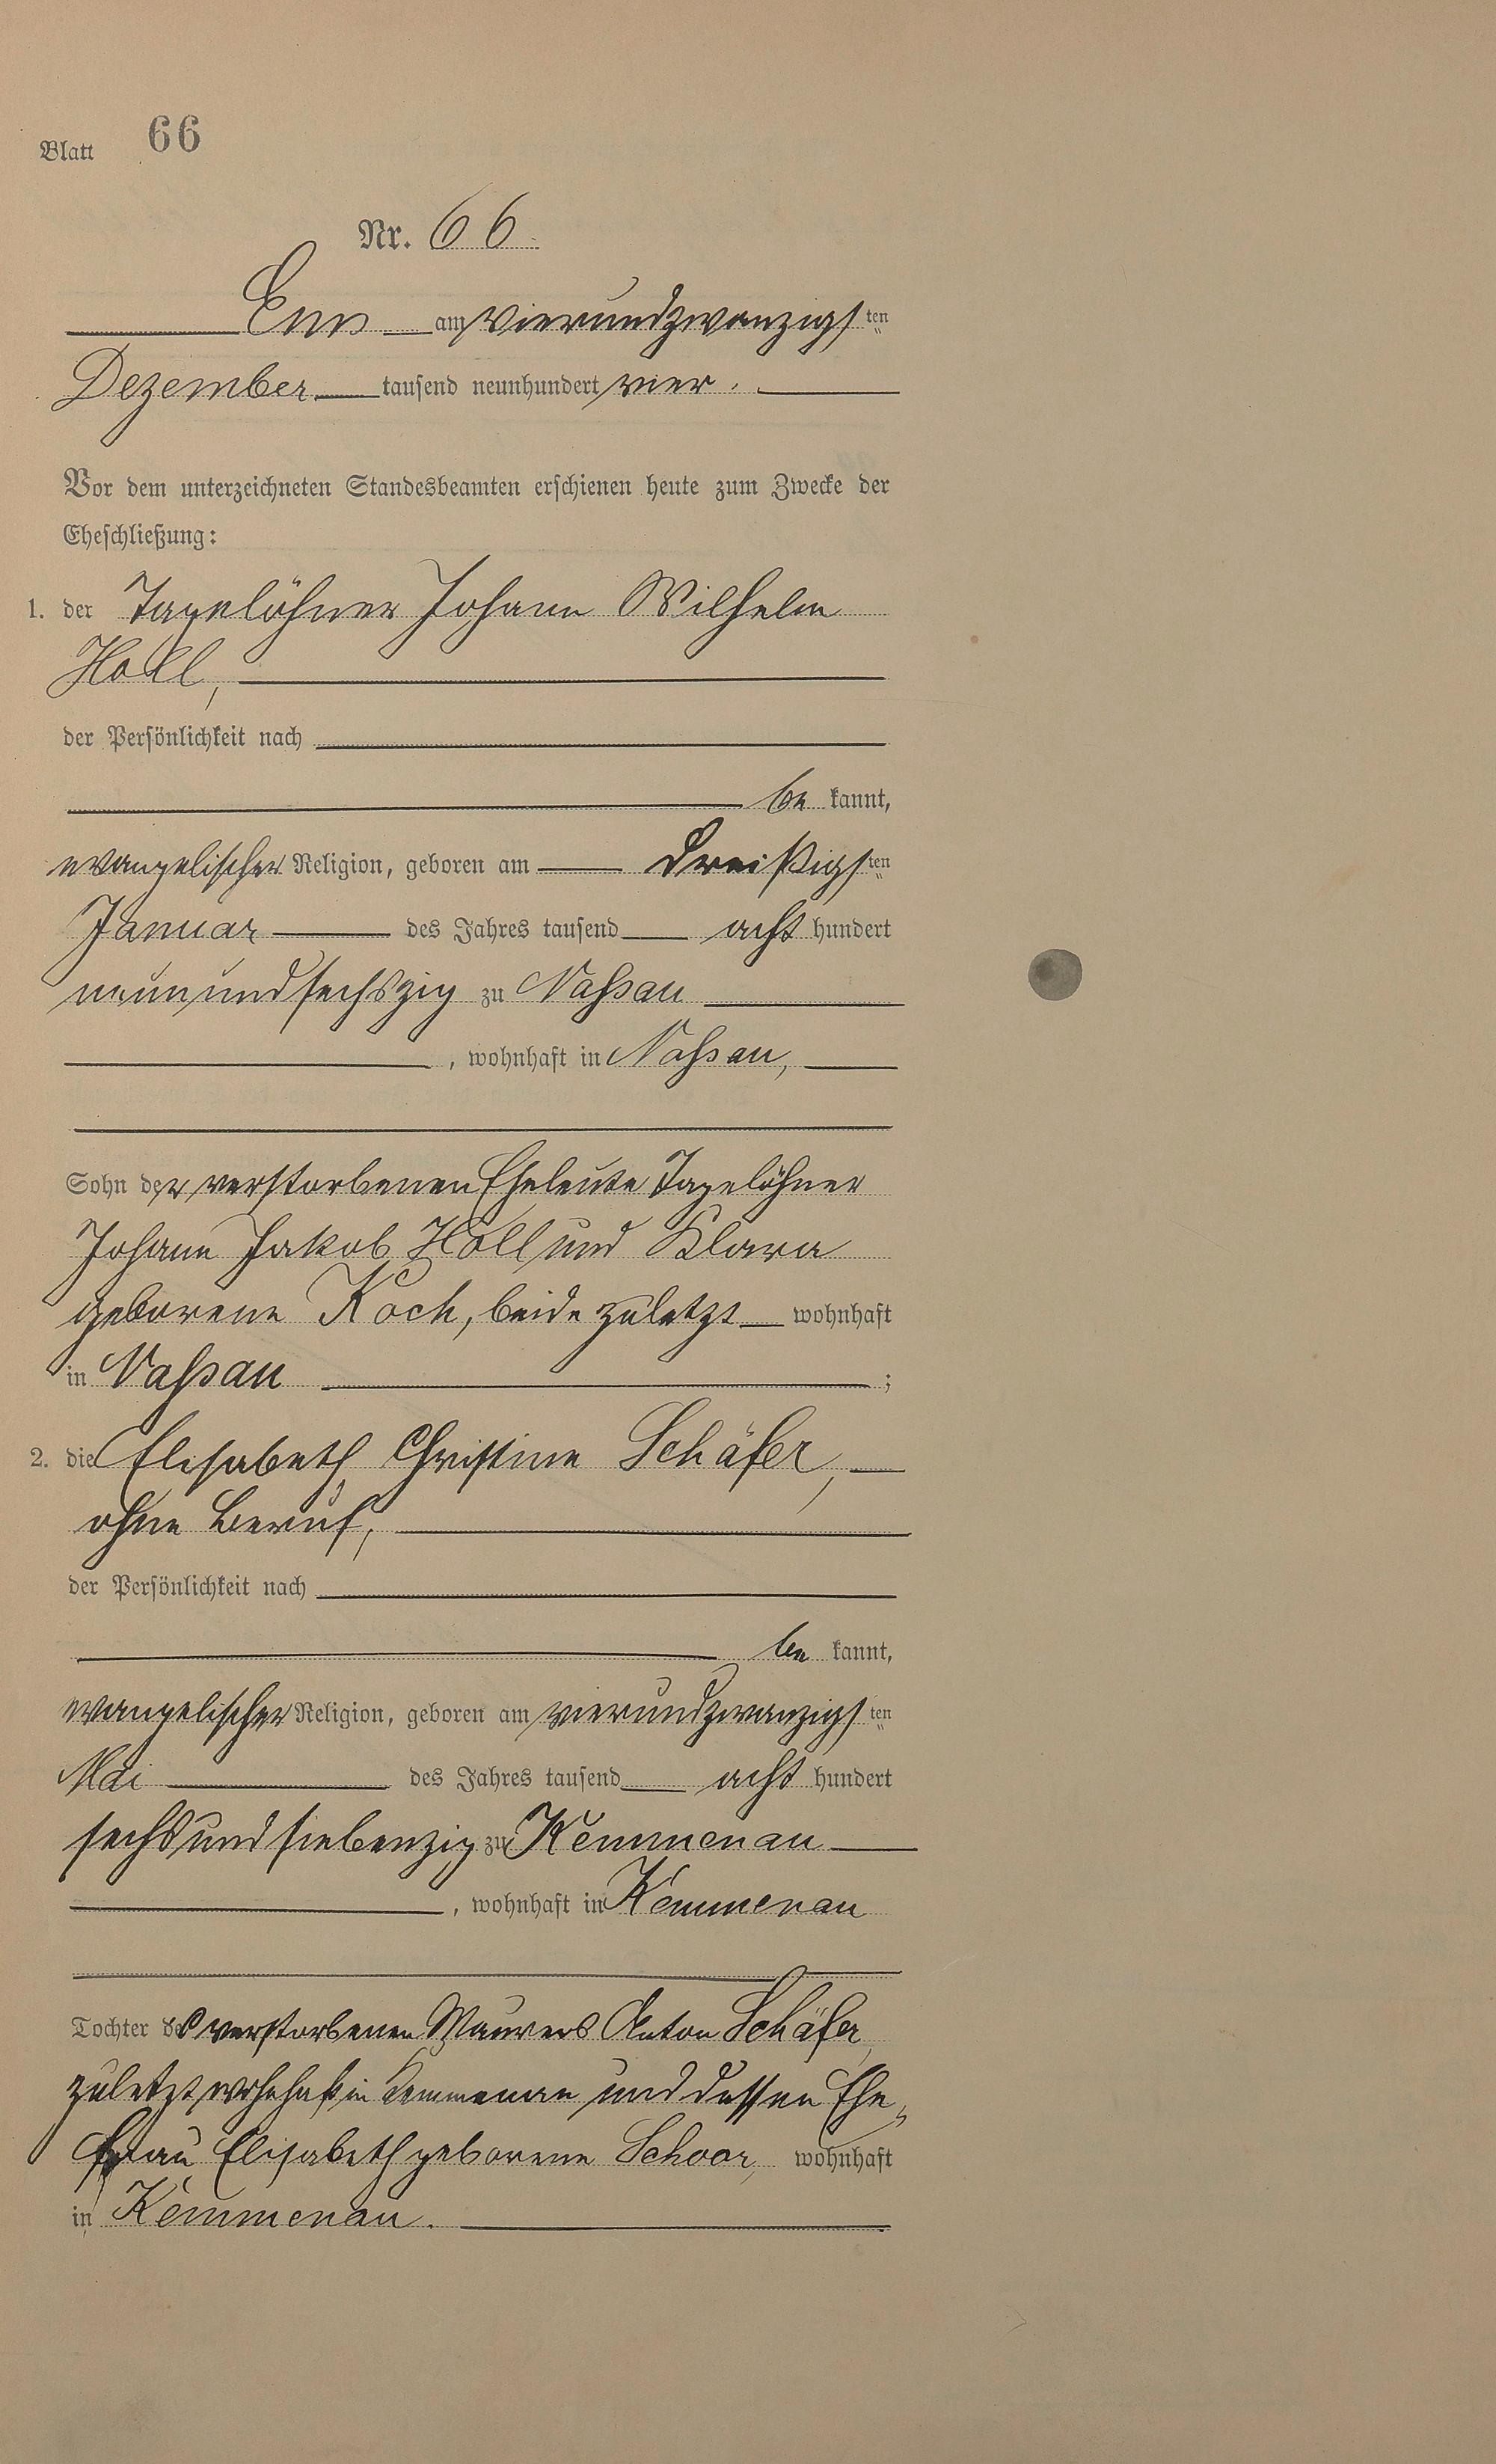 Blatt 66
Nr. 66.
Ems am vierundzwanzigsten
Dezember tausend neunhundert vier.
Vor dem unterzeichneten Standesbeamten erschienen heute zum Zwecke der
Eheschließung:
1. der Tagelöhner Johann Wilhelm
Holl,
der Persönlichkeit nach
be kannt,
evangelischer Religion, geboren am dreißigsten
Januar des Jahres tausend acht hundert
neunundsechszig zu Nassau
, wohnhaft in Nassau,
Sohn der verstorbenen Eheleute Tagelöhner
Johann Jakob Holl und Klara
geborene Koch, beide zuletzt wohnhaft
in Nassau ;
2. die Elisabeth Christine Schäfer,
ohne Beruf,
der Persönlichkeit nach
be kannt,
evangelischer Religion, geboren am vierundzwanzigsten
Mai des Jahres tausend acht hundert
sechsundsiebenzig zu Kemmenau
, wohnhaft in Kemmenau
Tochter des verstorbenen Maurers Anton Schäfer,
zuletzt wohnhaft in Kemmenau und dessen Ehe-
frau Elisabeth geborene Schoor, wohnhaft
in Kemmenau.